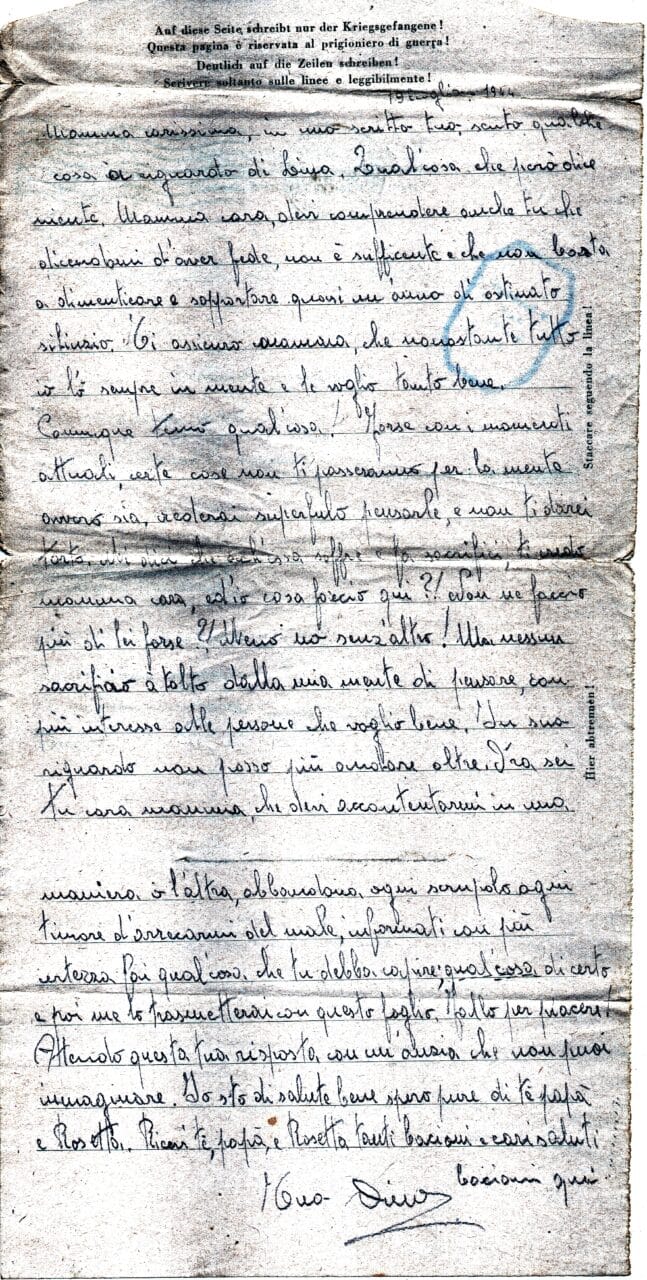 Auf diese Seite schreibt nur der Kriegsgefangene!
Questa pagina è riservata al prigioniero di guerra!
Deutlich auf die Zeilen schreiben!
Scrivere soltanto sulle linee e leggibilmente!
19 Luglio 1944
Mamma carissima, in uno scritto tuo, sento qualche
cosa a riguardo di Lina. Qual'cosa che però dice
niente. Mamma cara, devi comprendere anche tu che
dicendomi d'aver fede, non è sufficente e che non basta
a dimenticare e sopportare quasi un'anno di ostinato
silenzio. Ti assicuro mamma, che nonostante tutto
io l'ò sempre in mente e le voglio tanto bene.
Comunque temo qual'cosa! Forse con i momenti
attuali, certe cose non ti passeranno per la mente
ovvero sia, crederai superfulo pensarle, e non ti darei
torto. Mi dici che anch'essa soffre e fa sacrifici, ti credo
mamma cara, ed io cosa faccio qui?! Non ne faccio
più di lei forse?! Meno no senz'altro! Ma nessun
sacrificio à tolto dalla mia mente di pensare, con
più interesse alle persone che voglio bene. In suo
riguardo non posso più andare oltre. Ora sei
tu cara mamma, che devi accontentarmi in una
maniera o l'altra, abbandona ogni scrupolo ogni
timore d'arrecarmi del male, informati con più
certezza fai qual'cosa che tu debba capire; qual'cosa di certo
e poi me lo trasmetterai con questo foglio. Fallo per piacere!
Attendo questa tua risposta con un'ansia che non puoi
immaginare. Io sto di salute bene spero pure di tè papà
e Rosetta. Ricevi tè, papà, e Rosetta tanti bacioni e cari saluti
bacioni
Tuo Dino
Staccare seguendo la linea!
Hier abtrennen!